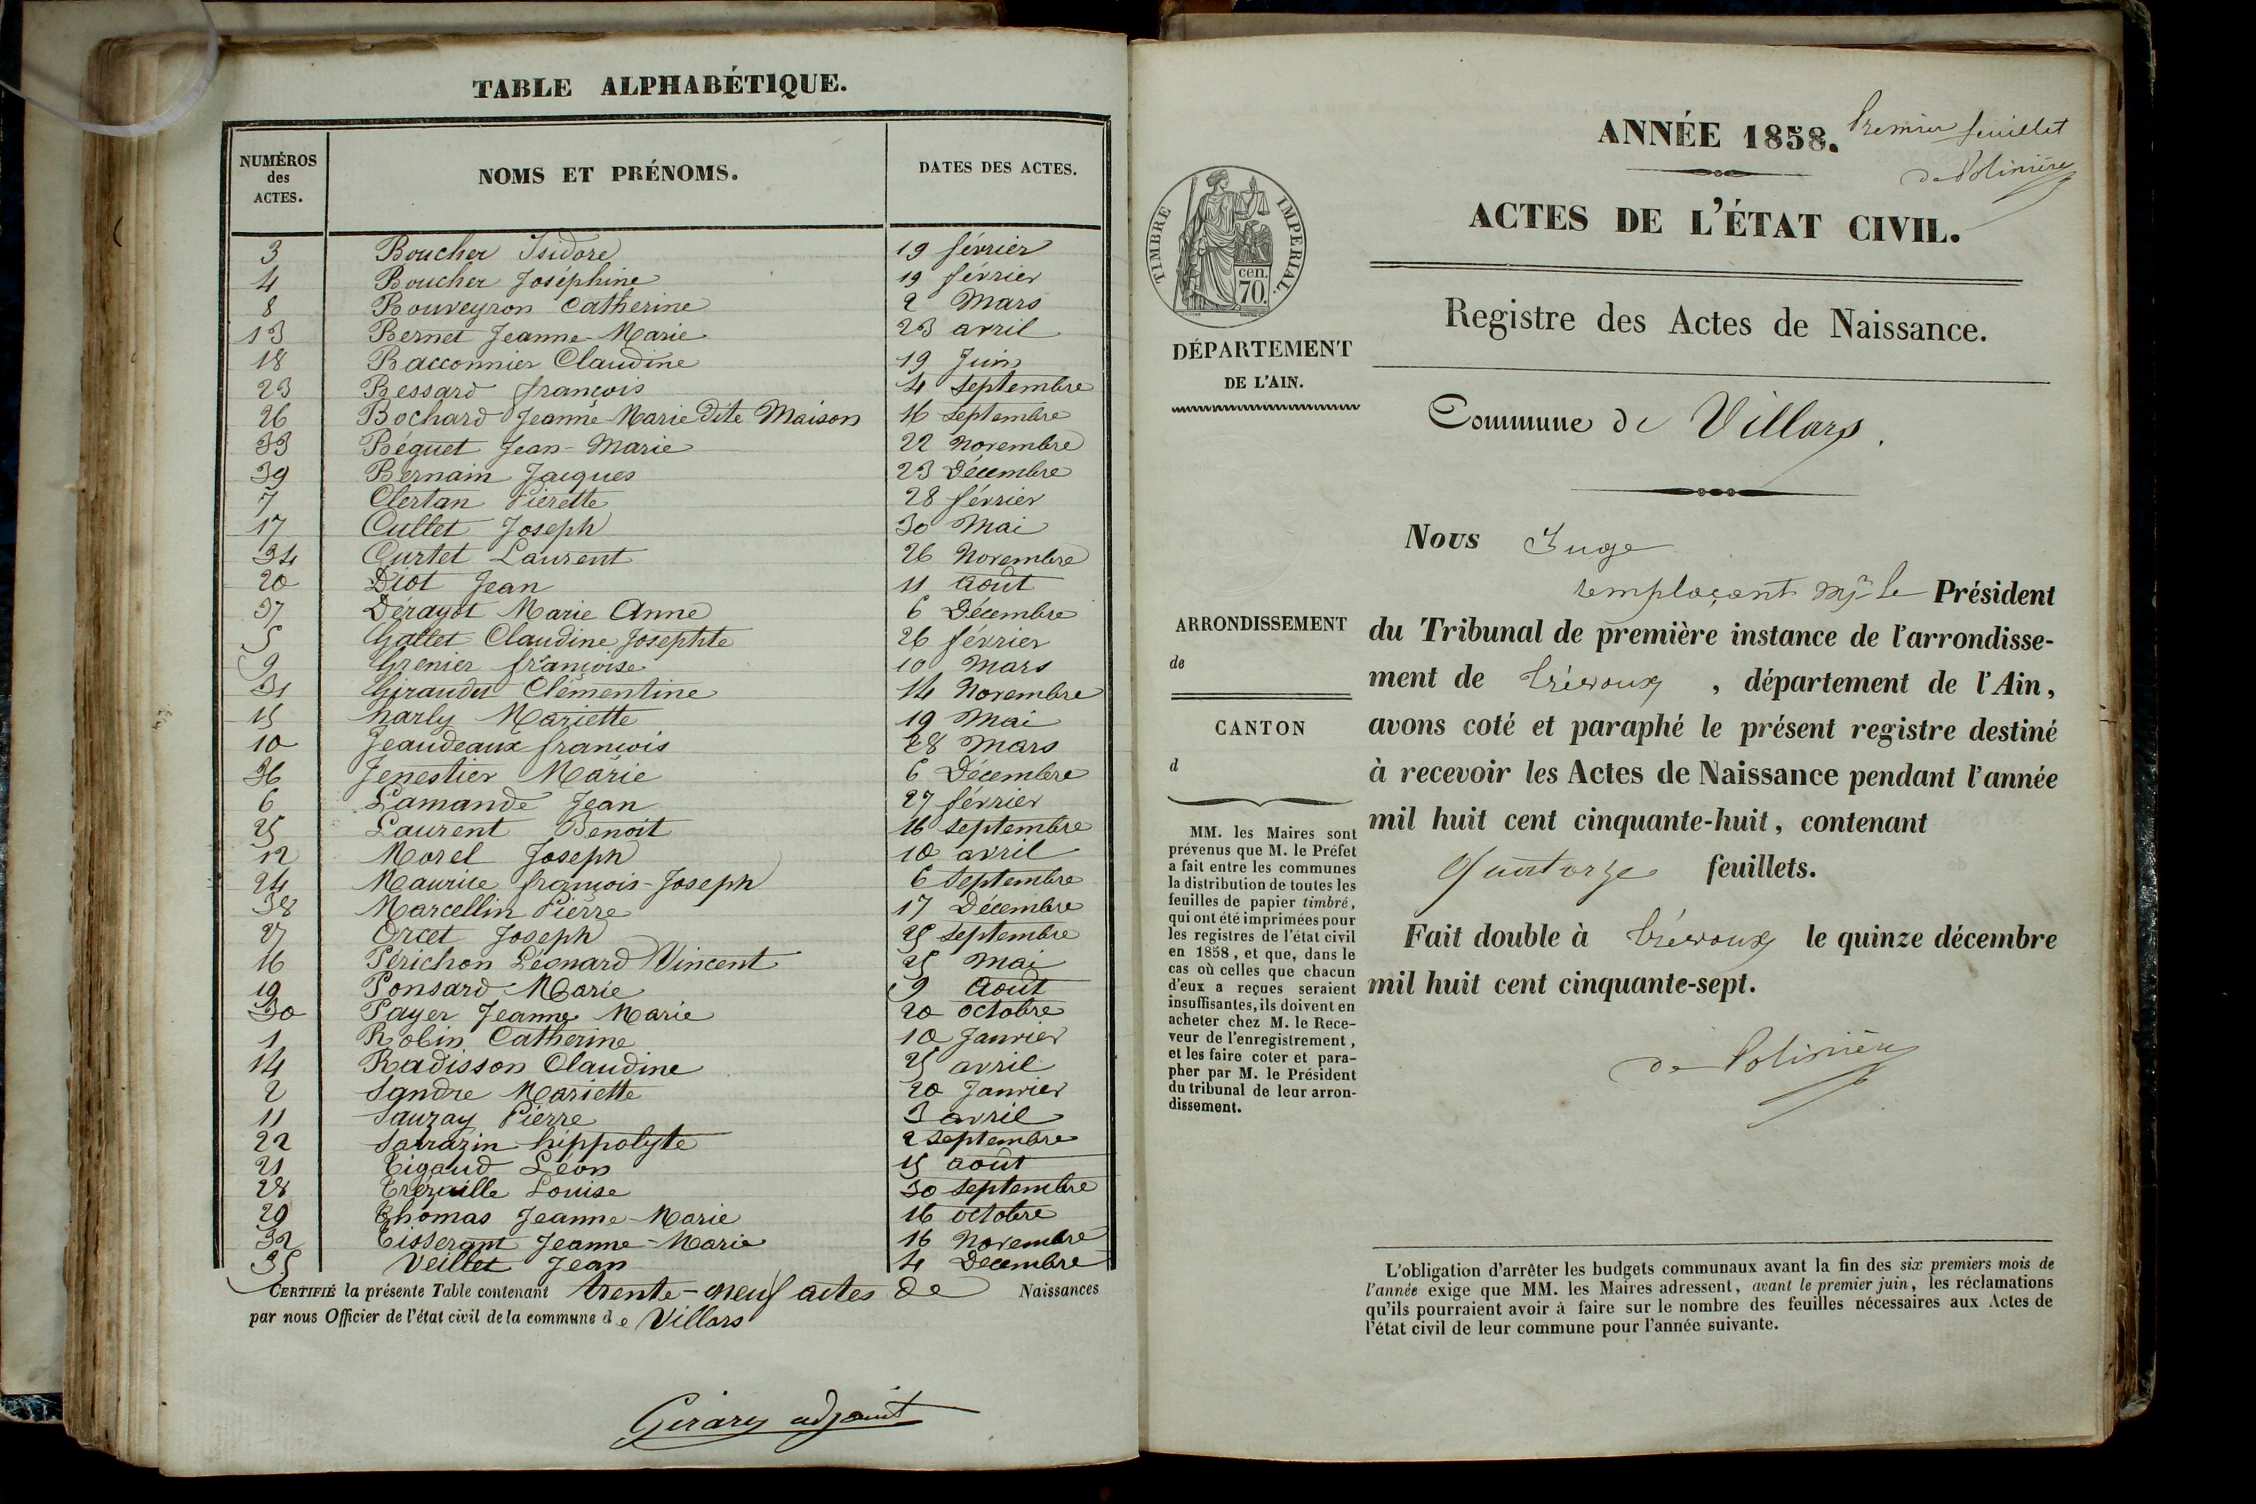 TABLE ALPHABÉTIQUE.
NUMÉROS des ACTES. NOMS ET PRÉNOMS. DATES DES ACTES.
3 Boucher Isidore 19 février
4 Boucher Joséphine 19 février
8 Bouveyron Catherine 2 Mars
13 Bernet Jeanne-Marie 23 avril
18 Bacconnier Claudine 19 Juin
23 Bessard françois 4 septembre
26 Bochard Jeanne-Marie Dite Maison 16 septembre
33 Béguet Jean-Marie 22 Novembre
39 Bernain Jacques 23 Décembre
7 Clertan Pierette 28 février
17 Cullet Joseph 30 Mai
34 Curtet Laurent 26 Novembre
20 Diot Jean 11 août
37 Dérayot Marie Anne 6 Décembre
5 Gallet Claudine Josephte 26 février
9 Grenier françoise 10 Mars
31 Giraudu Clémentine 14 Novembre
15 harly Mariette 19 Mai
10 Jeaudeaux françois 28 Mars
36 Jenestier Marie 6 Décembre
6 Lamande Jean 27 février
25 Laurent Benoit 16 septembre
12 Morel Joseph 10 avril
24 Maurice françois-Joseph 6 septembre
38 Marcellin Pierre 17 Décembre
27 Orcet Joseph 25 septembre
16 Périchon Léonard Vincent 25 Mai
19 Ponsard Marie 9 Août
30 Payer Jeanne Marie 20 octobre
1 Robin Catherine 10 Janvier
14 Radisson Claudine 25 avril
2 Sandre Mariette 20 Janvier
11 Sauzay Pierre 3 avril
22 Sarrazin hippolyte 2 septembre
21 Tigaud Léon 15 août
28 Trézaille Louise 30 septembre
29 Thomas Jeanne-Marie 16 octobre
32 Tisserant Jeanne-Marie 16 Novembre
35 Veillet Jean 4 Decembre
CERTIFIÉ la présente Table contenant trente-neuf actes de Naissances
par nous Officier de l'état civil de la commune de Villars
Girary adjoint
Premier feuillet
de Polinière
ANNÉE 1858.
ACTES DE L'ÉTAT CIVIL.
TIMBRE IMPÉRIAL.
cen.
70.
Registre des Actes de Naissance.
DÉPARTEMENT
DE L'AIN.
Commune de Villars.
Nous Juge
remplaçant Mr le Président
du Tribunal de première instance de l'arrondisse-
ment de Trévoux, département de l'Ain,
avons coté et paraphé le présent registre destiné
à recevoir les Actes de Naissance pendant l'année
mil huit cent cinquante-huit, contenant
Quatorze feuillets.
Fait double à Trévoux le quinze décembre
mil huit cent cinquante-sept.
de Polinière
ARRONDISSEMENT
de
CANTON
d
MM. les Maires sont
prévenus que M. le Préfet
a fait entre les communes
la distribution de toutes les
feuilles de papier timbré,
qui ont été imprimées pour
les registres de l'état civil
en 1858, et que, dans le
cas où celles que chacun
d'eux a reçues seraient
insuffisantes, ils doivent en
acheter chez M. le Rece-
veur de l'enregistrement,
et les faire coter et para-
pher par M. le Président
du tribunal de leur arron-
dissement.
L'obligation d'arrêter les budgets communaux avant la fin des six premiers mois de
l'année exige que MM. les Maires adressent, avant le premier juin, les réclamations
qu'ils pourraient avoir à faire sur le nombre des feuilles nécessaires aux Actes de
l'état civil de leur commune pour l'année suivante.